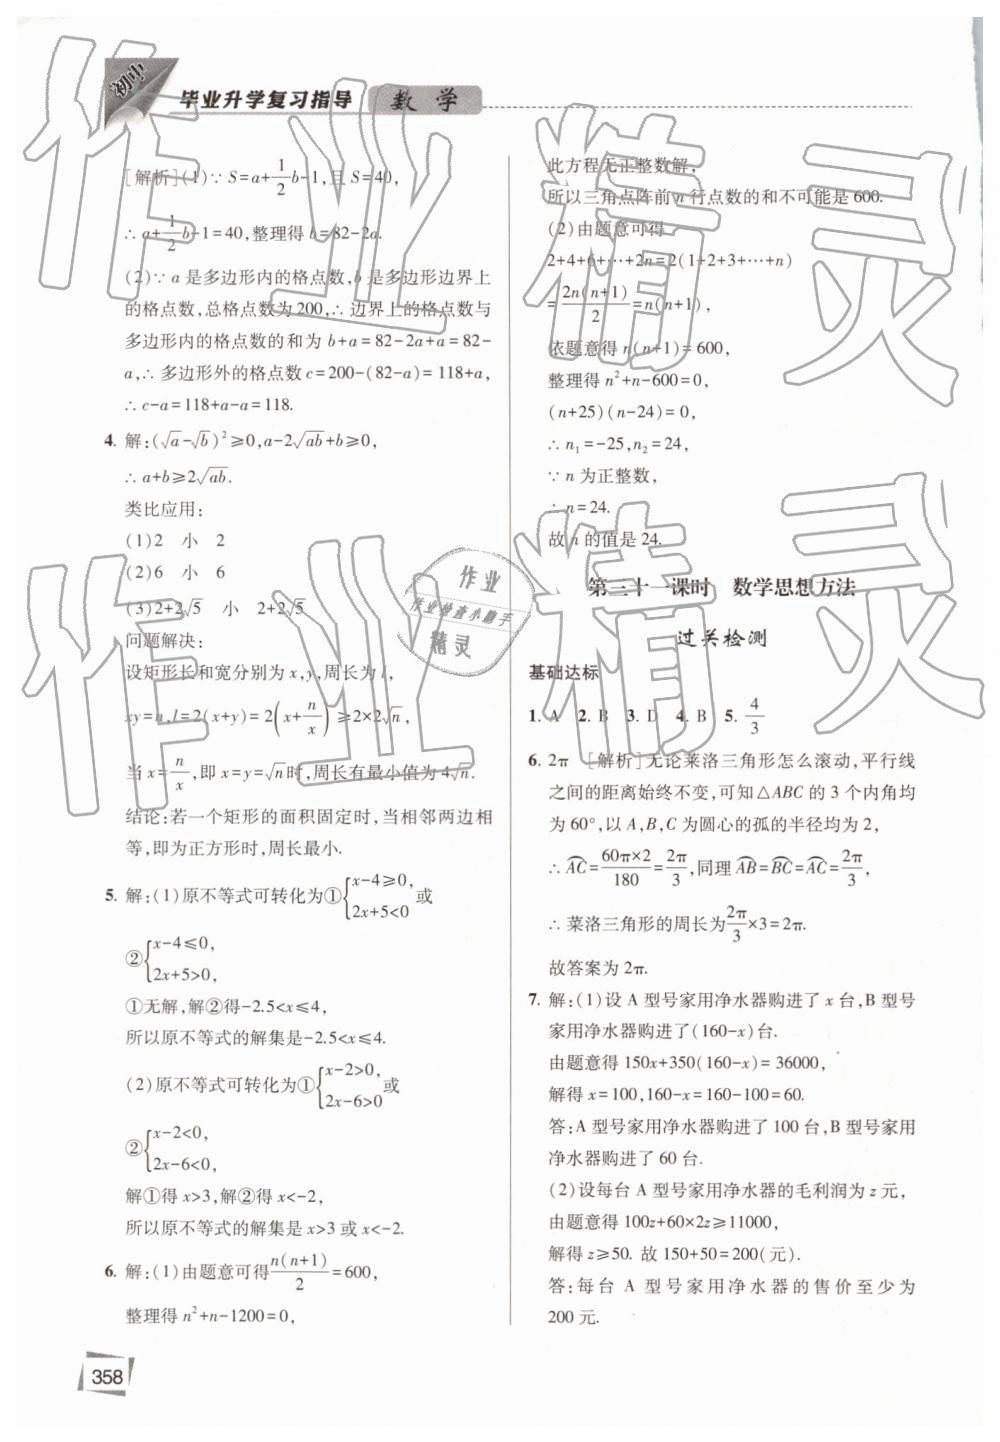 初中
毕业升学复习指导 数学
[解析](1)∵S=a+1/2b-1,且S=40,
∴a+1/2b-1=40,整理得b=82-2a.
(2)∵a是多边形内的格点数,b是多边形边界上
的格点数,总格点数为200,∴边界上的格点数与
多边形内的格点数的和为b+a=82-2a+a=82-
a,∴多边形外的格点数c=200-(82-a)=118+a,
∴c-a=118+a-a=118.
4. 解:(√a-√b)²≥0,a-2√ab+b≥0,
∴a+b≥2√ab.
类比应用:
(1)2 小 2
(2)6 小 6
(3)2+2√5 小 2+2√5
问题解决:
设矩形长和宽分别为x,y,周长为l,
xy=n,l=2(x+y)=2(x+n/x)≥2×2√n,
当x=n/x,即x=y=√n时,周长有最小值为4√n.
结论:若一个矩形的面积固定时,当相邻两边相
等,即为正方形时,周长最小.
5. 解:(1)原不等式可转化为①{x-4≥0, 2x+5<0 或
②{x-4≤0, 2x+5>0,
①无解,解②得-2.5<x≤4,
所以原不等式的解集是-2.5<x≤4.
(2)原不等式可转化为①{x-2>0, 2x-6>0 或
②{x-2<0, 2x-6<0,
解①得x>3,解②得x<-2,
所以原不等式的解集是x>3或x<-2.
6. 解:(1)由题意可得n(n+1)/2=600,
整理得n²+n-1200=0,
此方程无正整数解,
所以三角点阵前n行点数的和不可能是600.
(2)由题意可得
2+4+6+…+2n=2(1+2+3+…+n)
=2n(n+1)/2=n(n+1),
依题意得n(n+1)=600,
整理得n²+n-600=0,
(n+25)(n-24)=0,
∴n₁=-25,n₂=24,
∵n为正整数,
∴n=24.
故n的值是24.
第三十一课时 数学思想方法
过关检测
基础达标
1. A 2. B 3. D 4. B 5. 4/3
6. 2π [解析]无论莱洛三角形怎么滚动,平行线
之间的距离始终不变,可知△ABC的3个内角均
为60°,以A,B,C为圆心的孤的半径均为2,
∴⌒AC=60π×2/180=2π/3,同理⌒AB=⌒BC=⌒AC=2π/3,
∴莱洛三角形的周长为2π/3×3=2π.
故答案为2π.
7. 解:(1)设A型号家用净水器购进了x台,B型号
家用净水器购进了(160-x)台.
由题意得150x+350(160-x)=36000,
解得x=100,160-x=160-100=60.
答:A型号家用净水器购进了100台,B型号家用
净水器购进了60台.
(2)设每台A型号家用净水器的毛利润为z元,
由题意得100z+60×2z≥11000,
解得z≥50.故150+50=200(元).
答:每台A型号家用净水器的售价至少为
200元.
358
作业精灵
作业精灵
作业
作业检查小助手
精灵